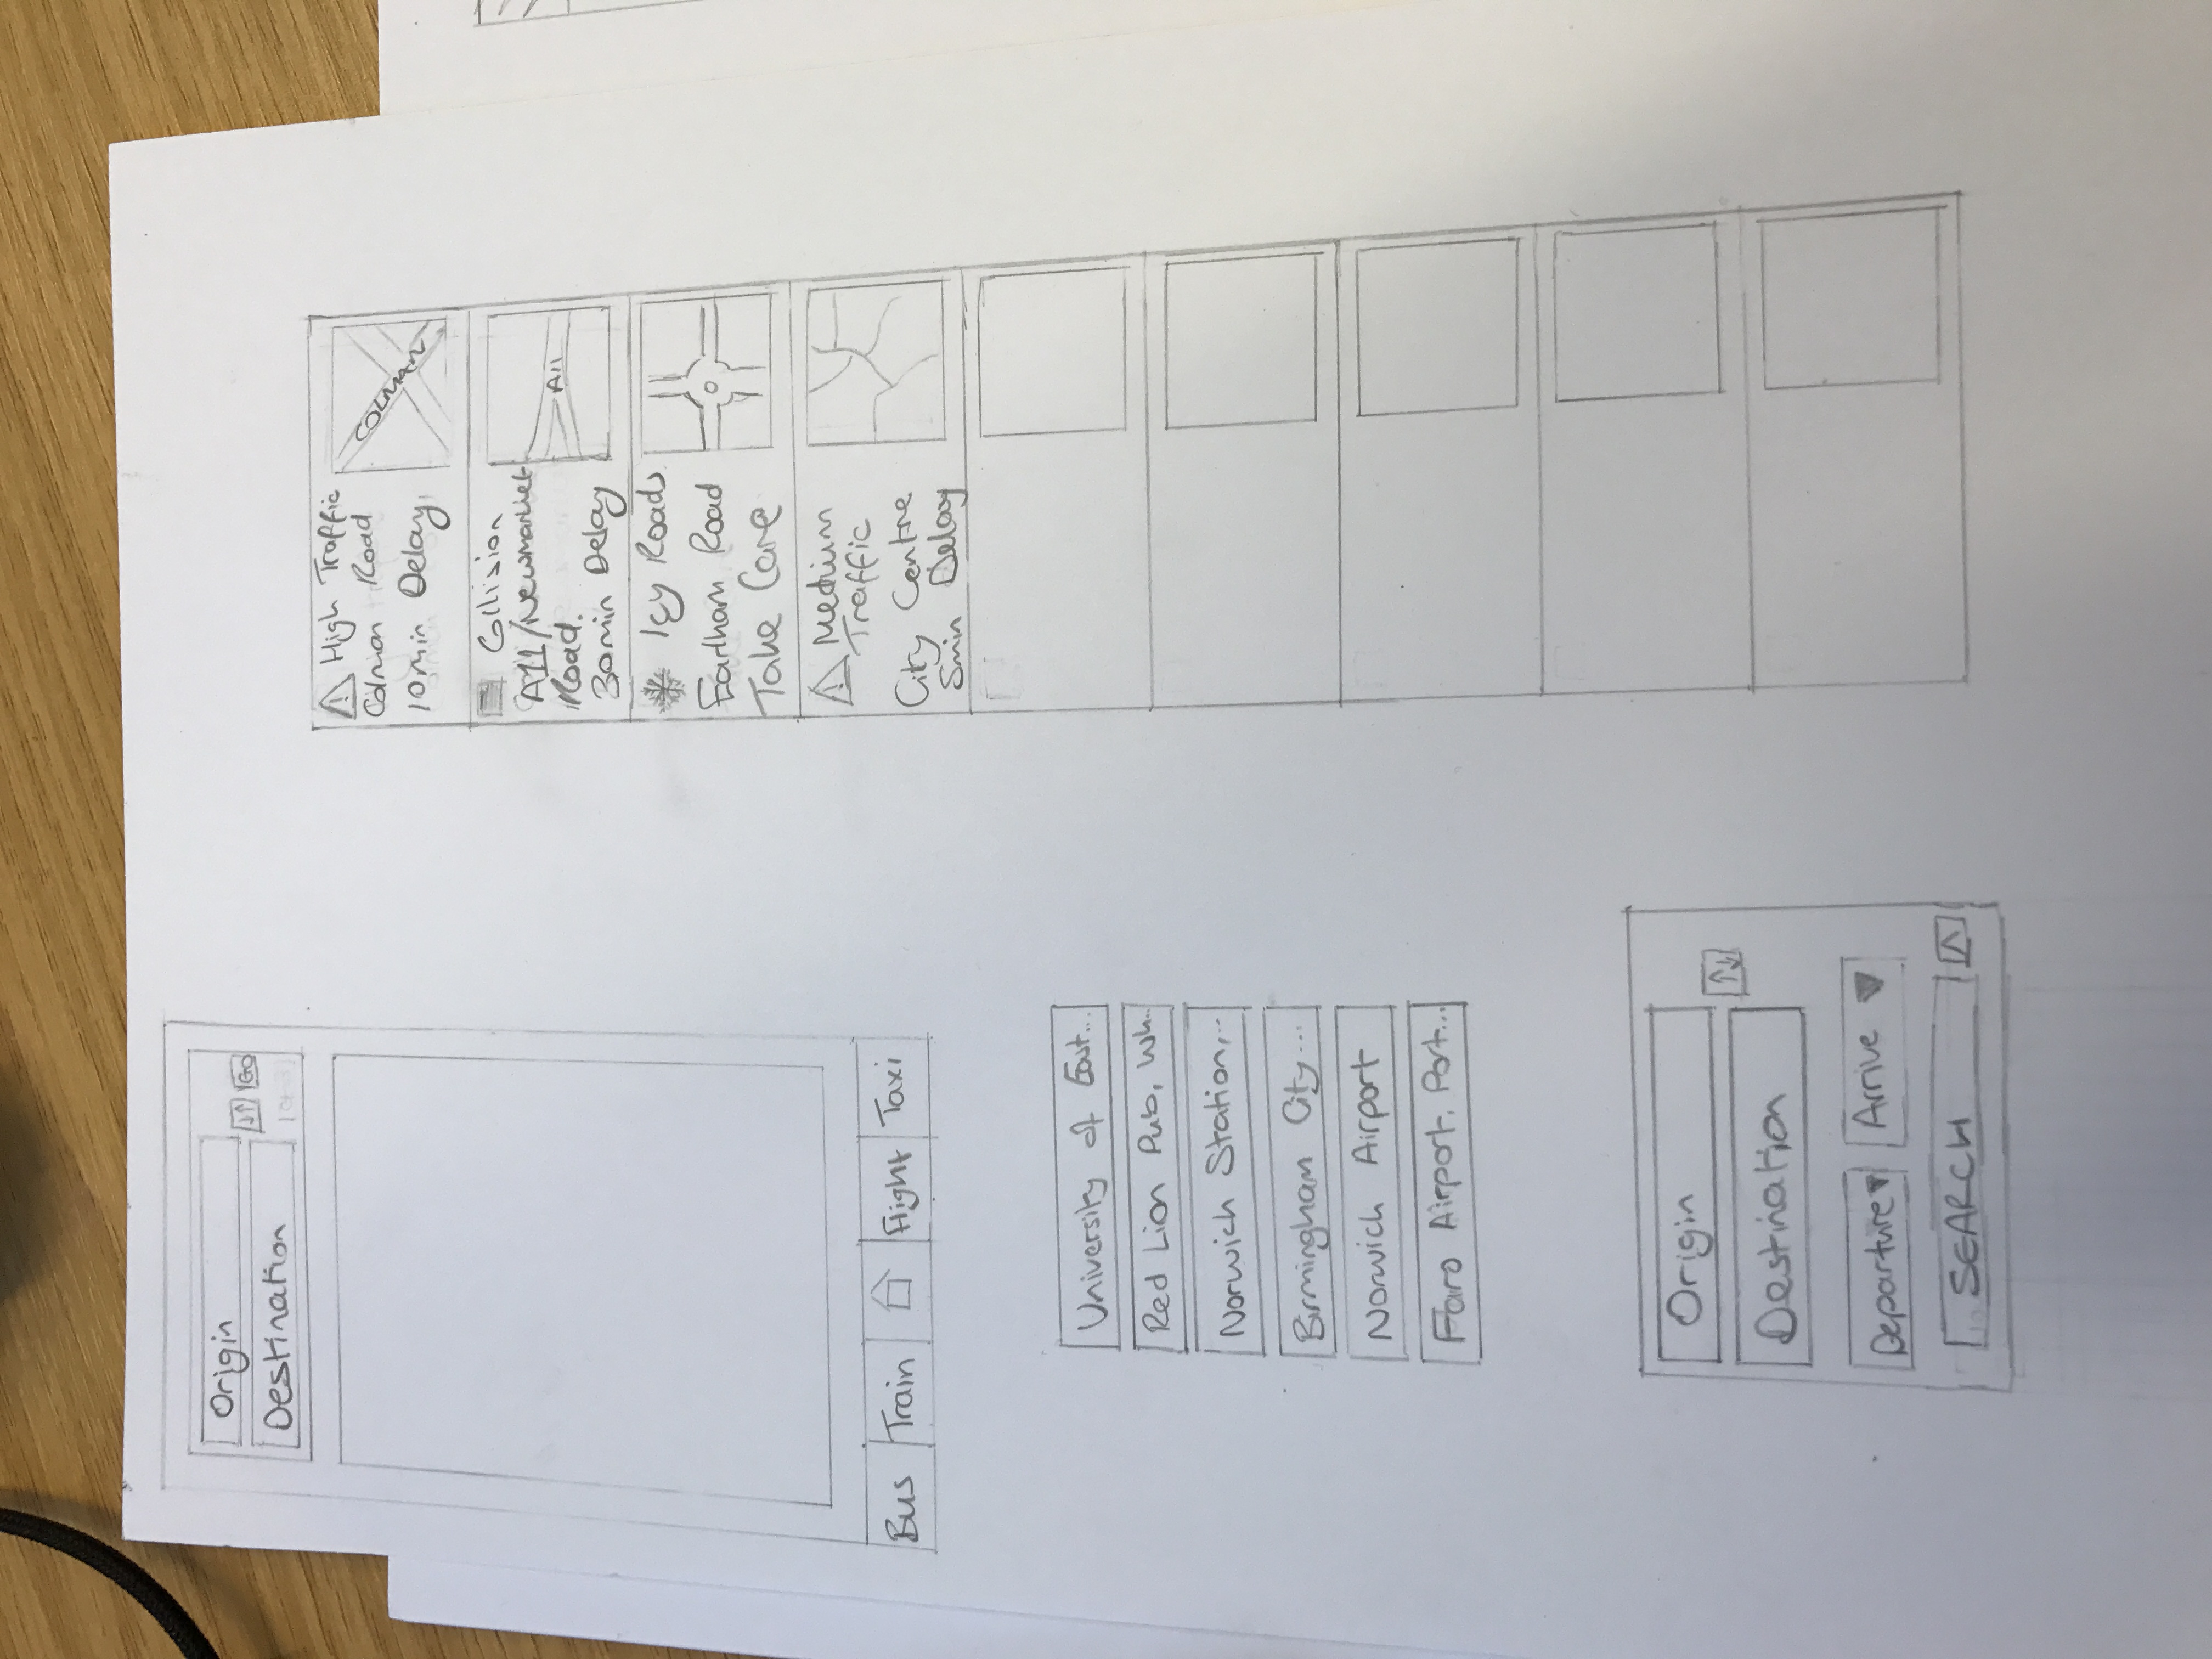 Origin
GO
Destination
Bus Train Flight Taxi
University of East...
Red Lion Pub, Wh..
Norwich Station,..
Birmingham City...
Norwich Airport
Faro Airport, Port...
Origin
Destination
Departure Arrive
SEARCH
High Traffic
Colman Road
10min Delay
COLMAN
Collision
A11/Newmarket
Road.
30min Delay
A11
Icy Roads
Earlham Road
Take Care
Medium
Traffic
City Centre
5min Delay